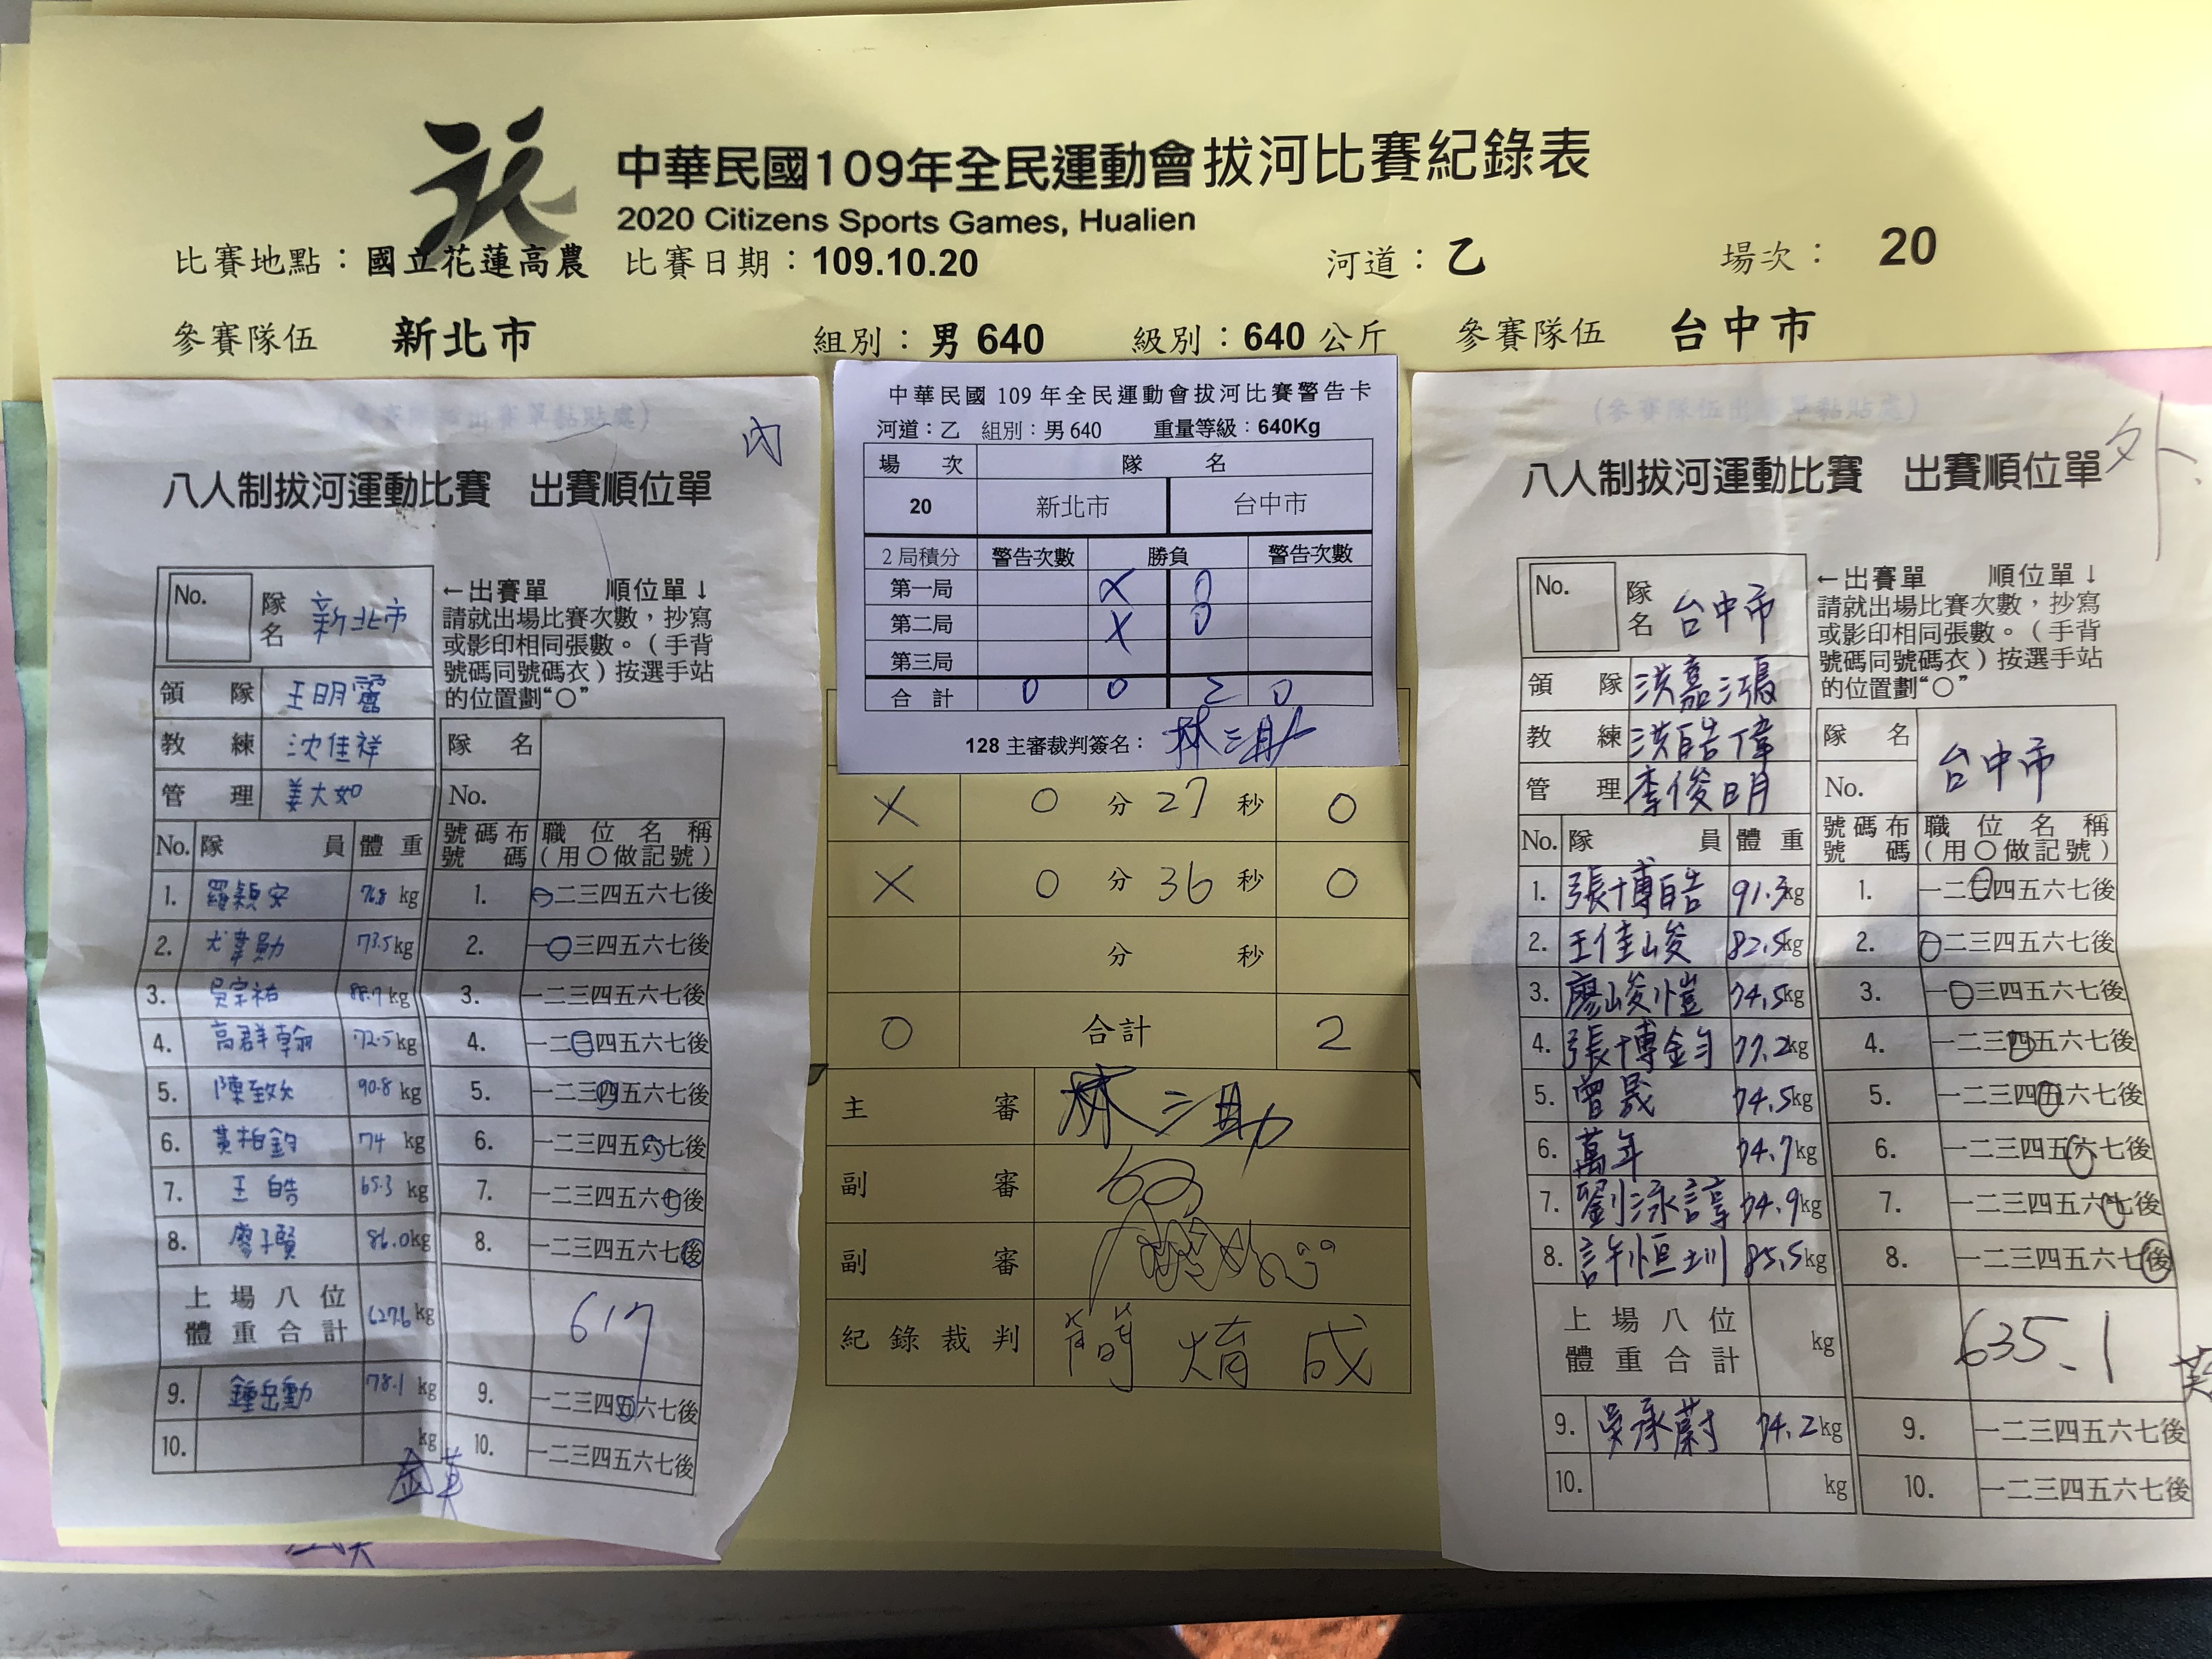 中華民國109年全民運動會拔河比賽紀錄表
2020 Citizens Sports Games, Hualien
比賽地點：國立花蓮高農 比賽日期：109.10.20 河道：乙 場次： 20
參賽隊伍 新北市 組別：男 640 級別：640 公斤 參賽隊伍 台中市
(參賽隊伍出賽單黏貼處)
內
八人制拔河運動比賽 出賽順位單
No. 隊名 新北市
←出賽單 順位單↓
請就出場比賽次數，抄寫
或影印相同張數。（手背
號碼同號碼衣）按選手站
的位置劃“○”
領隊 王明靈
教練 沈佳祥
管理 姜大如
隊名
No.
No. 隊員 體重 號碼布號碼 職位名稱(用○做記號)
1. 羅穎安 76.8 kg 1. 一二三四五六七後
2. 尤韋勛 73.5 kg 2. 一二三四五六七後
3. 吳宗祐 88.7 kg 3. 一二三四五六七後
4. 高群翰 72.5 kg 4. 一二三四五六七後
5. 陳致 90.8 kg 5. 一二三四五六七後
6. 黃柏鈞 74 kg 6. 一二三四五六七後
7. 王皓 65.3 kg 7. 一二三四五六七後
8. 廖子賢 86.0 kg 8. 一二三四五六七後
上場八位體重合計 627.6 kg 617
9. 鍾岳勳 78.1 kg 9. 一二三四五六七後
10. kg 10. 一二三四五六七後
中華民國 109 年全民運動會拔河比賽警告卡
河道：乙 組別：男 640 重量等級：640Kg
場次 隊名
20 新北市 台中市
2 局積分 警告次數 勝負 警告次數
第一局 X 0
第二局 X 0
第三局
合計 0 0 2 0
128 主審裁判簽名： 林三助
X 0 分 27 秒 0
X 0 分 36 秒 0
分 秒
0 合計 2
主審 林三助
副審
副審
紀錄裁判 簡焴成
(參賽隊伍出賽單黏貼處)
外
八人制拔河運動比賽 出賽順位單
No. 隊名 台中市
←出賽單 順位單↓
請就出場比賽次數，抄寫
或影印相同張數。（手背
號碼同號碼衣）按選手站
的位置劃“○”
領隊 洪嘉鴻
教練 洪皓偉
管理 李俊明
隊名 台中市
No.
No. 隊員 體重 號碼布號碼 職位名稱(用○做記號)
1. 張博皓 91.3 kg 1. 一二三四五六七後
2. 王佳峻 82.5 kg 2. 一二三四五六七後
3. 廖峻愷 74.5 kg 3. 一二三四五六七後
4. 張博鈞 77.2 kg 4. 一二三四五六七後
5. 曾晟 74.5 kg 5. 一二三四五六七後
6. 萬年 74.7 kg 6. 一二三四五六七後
7. 劉泳諄 74.9 kg 7. 一二三四五六七後
8. 許恒圳 85.5 kg 8. 一二三四五六七後
上場八位體重合計 kg 635.1
9. 吳承蔚 74.2 kg 9. 一二三四五六七後
10. kg 10. 一二三四五六七後